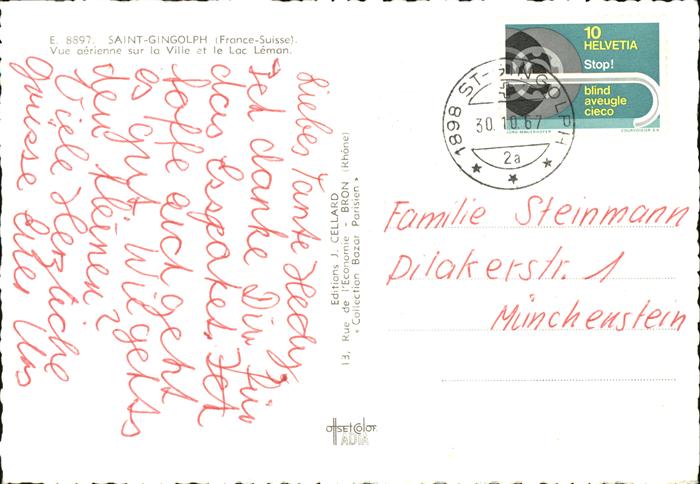 E. 8897. SAINT-GINGOLPH (France-Suisse).
Vue aérienne sur la Ville et le Lac Léman.
Liebes Tante Hedy
Ich danke Dir für
das Esspaket. Ich
hoffe euch geht
es gut. Wie gehts
den kleinen?
Viele Herzliche
grüsse euer Urs
Editions J. CELLARD
13, Rue de l'Economie - BRON (Rhône)
« Collection Bazar Parisien »
offsetColor
ADIA
10
HELVETIA
Stop!
blind
aveugle
cieco
COURVOISIER S.A.
1898 ST-GINGOLPH
30.10.67
2a
Familie Steinmann
Dilakerstr. 1
Münchenstein